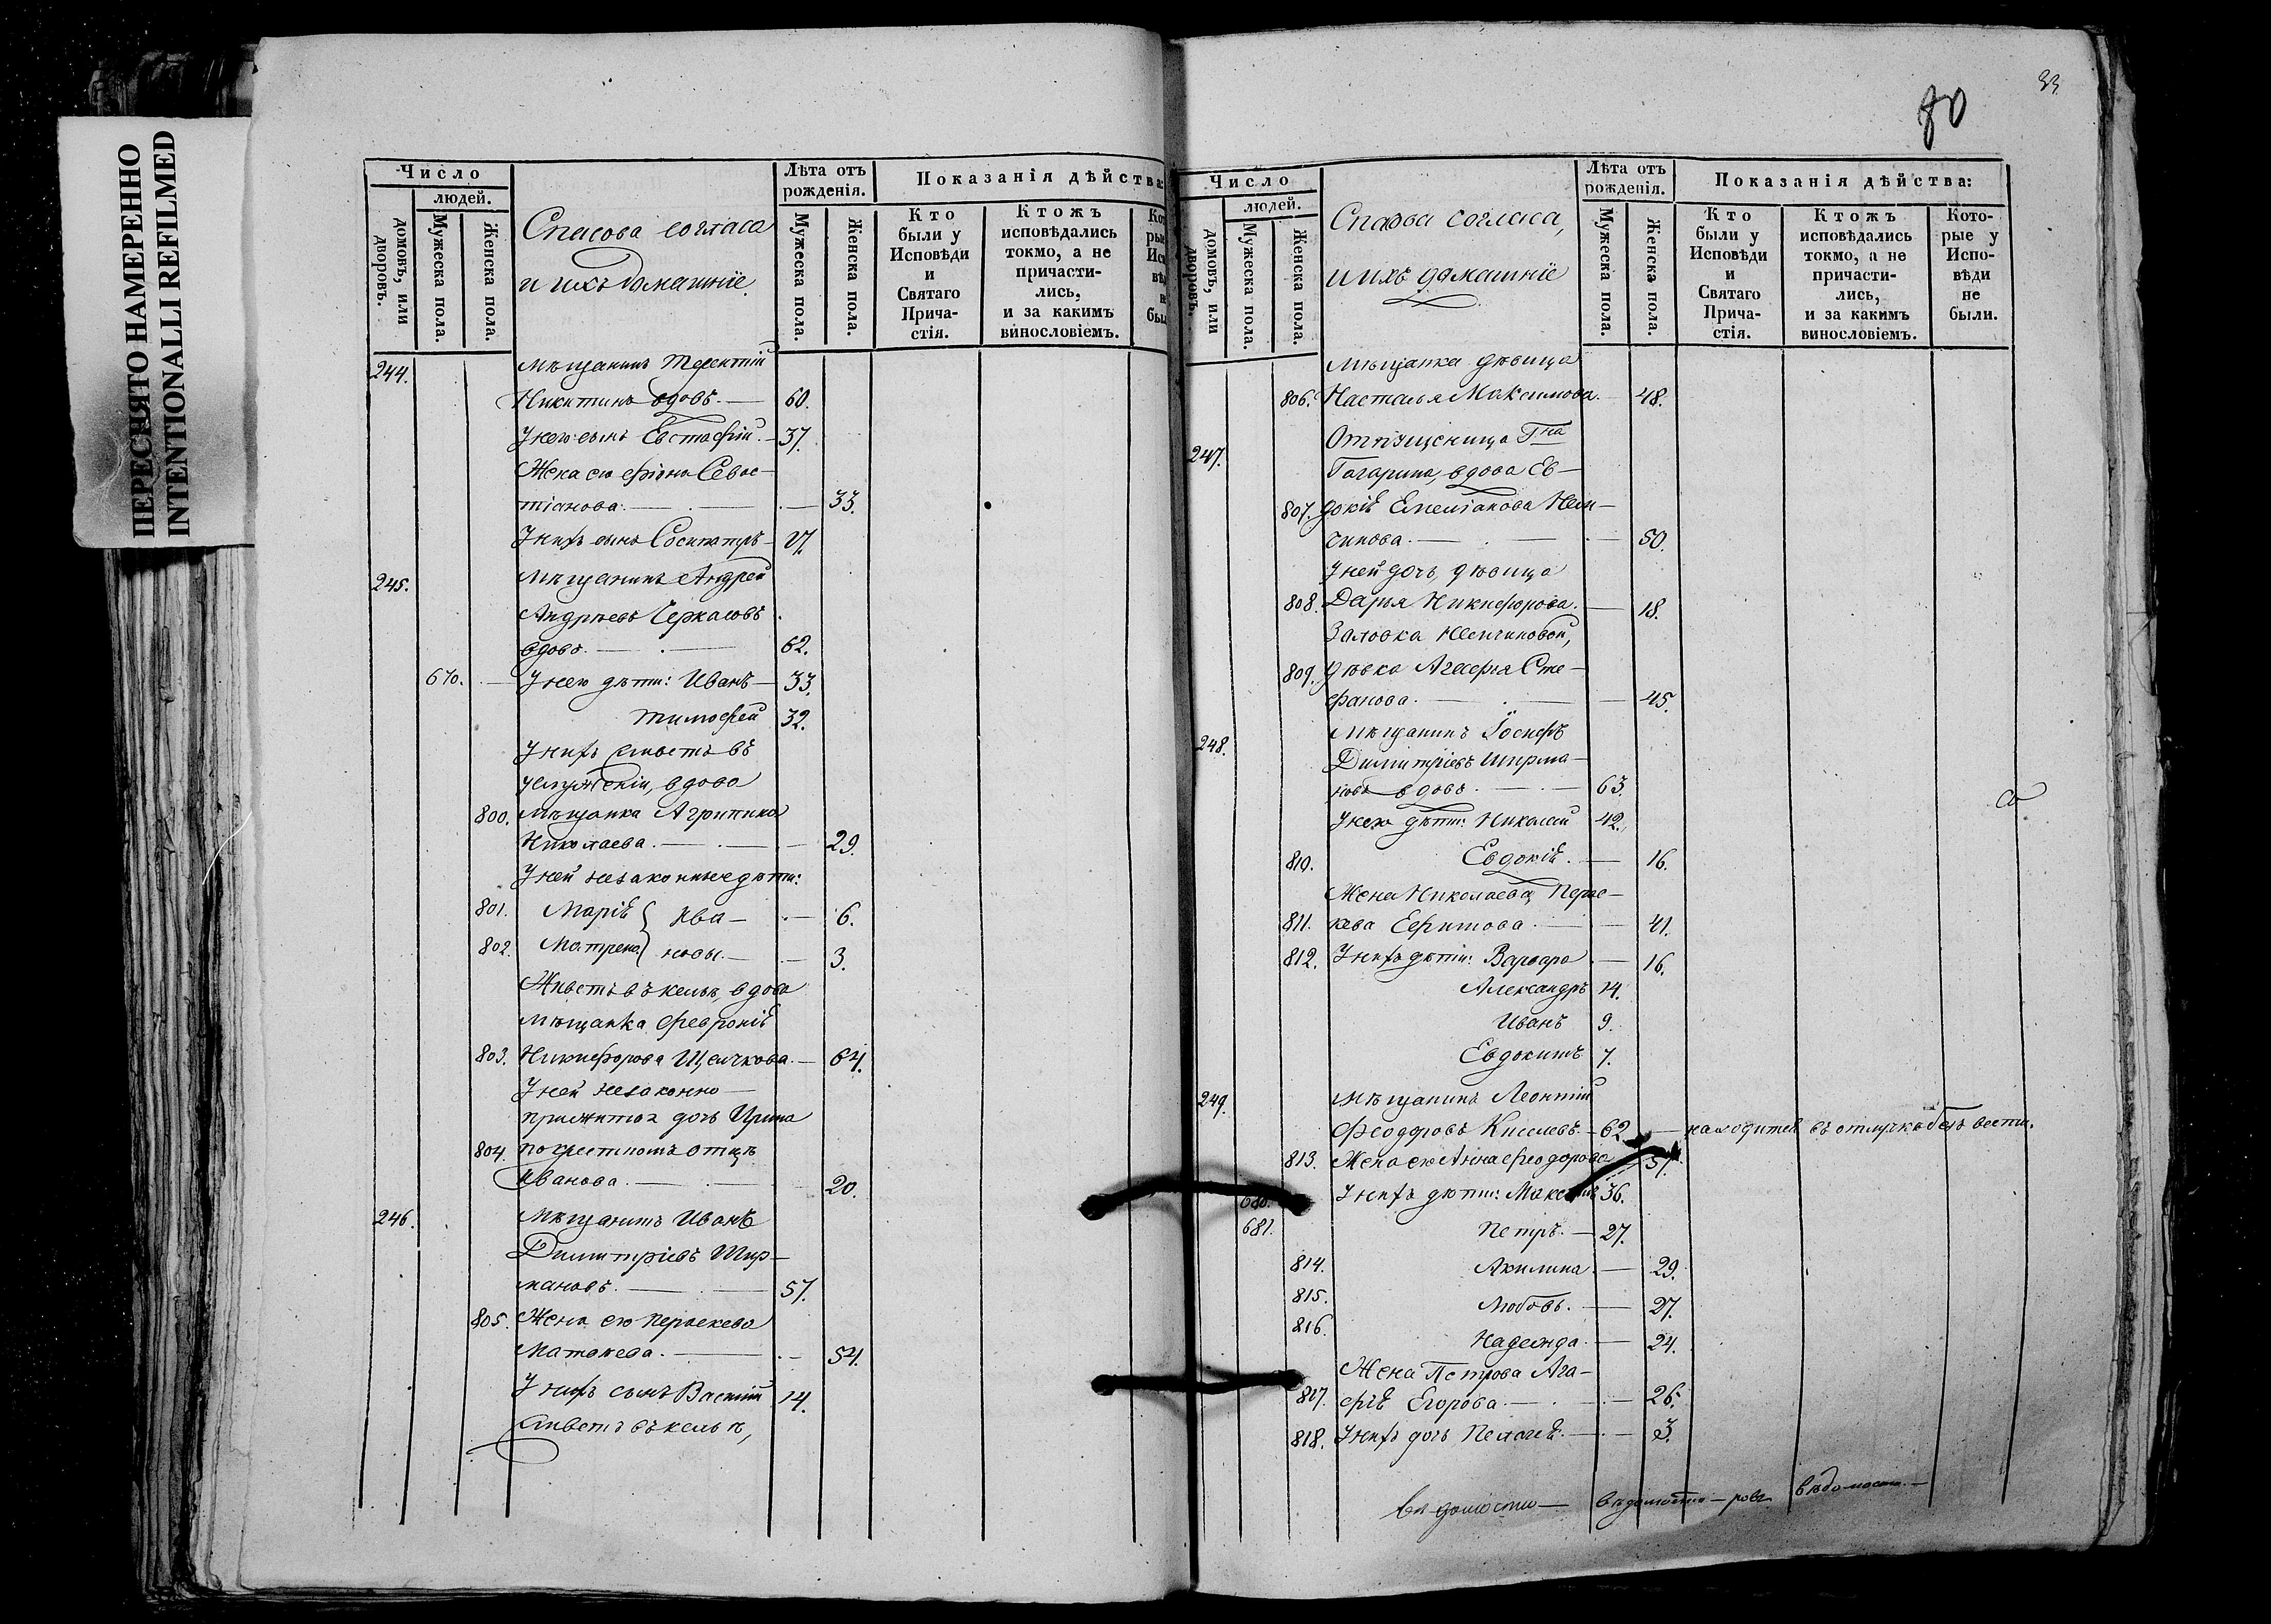 ПЕРЕСНЯТО НАМЕРЕННО
INTENTIONALLI REFILMED
Число
людей.
домовъ, или дворовъ.
Мужеска пола.
Женска пола.
Спасова согласа
и ихъ домашніе.
Лѣта отъ рожденія.
Мужеска пола.
Женска пола.
Показанія дѣйства:
Кто были у Исповѣди и Святаго Прича-стія.
Ктожъ исповѣдались токмо, а не причасти-лись, и за какимъ винословіемъ.
244. Мѣщанинъ Терентій
Никитинъ вдовъ. — 60.
У него сынъ Евстафій. — 37.
Жена его Севас-
тіанова. — 33.
У нихъ сынъ Сосипатръ —
245. Мѣщанинъ Андрей
Андреевъ Черкасовъ
вдовъ. — 62.
670. — У него дѣти: Иванъ — 33.
Тимофей 32.
У нихъ живетъ въ
услуженіи, вдова
800. Мѣщанка Агрипина
Николаева. — 29.
У ней незаконные дѣти:
801. Марія { Ива — 6.
802. Матрена } новы. — 3.
Живетъ въ кельѣ, вдова
Мѣщанка Февронія
803. Никифорова — 64.
У ней незаконно
прижитая дочь Ирина
804. по крестномъ отцѣ
Иванова. — 20.
246. Мѣщанинъ Иванъ
Димитріевъ Шир-
мановъ. — 57.
805. Жена его Параскева
Матвеева. — 54.
У нихъ сынъ Василій 14.
Живетъ въ кельѣ,
33
80
Число
людей.
домовъ, или дворовъ.
Мужеска пола.
Женска пола.
Спасова согласа,
и ихъ домашніе
Лѣта отъ рожденія.
Мужеска пола.
Женска пола.
Показанія дѣйства:
Кто были у Исповѣди и Святаго Прича-стія.
Ктожъ исповѣдались токмо, а не причасти-лись, и за какимъ винословіемъ.
Кото-рые у Испо-вѣди не были.
Мѣщанка дѣвица
806. Настасья Максимова. — 48.
247. Отпущеница Гна
Гагарина, вдова Ев-
807. докія Емеліанова Нем-
чинова. — 50.
У ней дочь, дѣвица
808. Дарья Никифорова. — 18.
Заловка Немчиновой,
809. дѣвка Агафья Сте-
фанова. — 45.
248. Мѣщанинъ Іосифъ
Димитріевъ Ширма-
новъ вдовъ. — 63.
У него дѣти: Николай 42.
810. Евдокія. — 16.
Жена Николаева, Парас-
811. кева Ефимова. — 41.
812. У нихъ дѣти: Варвара — 16.
Александръ 14.
Иванъ 9.
Евдокимъ 7.
249. Мѣщанинъ Леонтій
Феодоровъ Киселевъ. — 62. — находится въ отлучкѣ безъ вести.
813. Жена его Анна Феодорова 57.
680. У нихъ дѣти: Максимъ 36.
681. Петръ. — 27.
814. Акилина. — 29.
815. Любовь. — 27.
816. Надежда. — 24.
Жена Петрова Ага-
817. фія Егорова. — 26.
818. У нихъ дочь Пелагея. — 3.